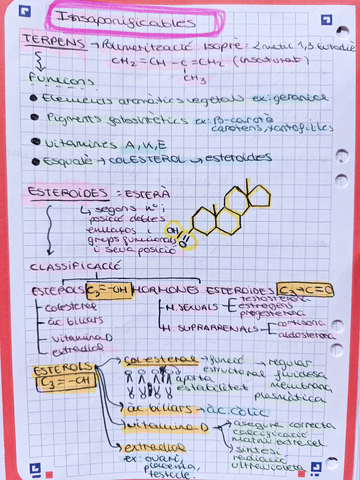 Insaponificables
TERPENS → Polimerització isoprè: 2 metil 1,3 butadiè
CH₂ = CH - C = CH₂ (insaturat)
CH₃
Funcions
• Elements aromàtics vegetals ex: geraniol
• Pigments fotosintètics ex: β-carotè
carotens, xantofil·les
• Vitamines A, K, E
• Esqualè → COLESTEROL → esteroides
ESTEROIDES = ESTERÀ
↳ segons nº i
posició dobles
enllaços i
grups funcionals
i seva posició
OH
O
CLASSIFICACIÓ
ESTEROLS C₃ = -OH HORMONES ESTEROIDES C₃ → C = O
• colesterol
• àc. biliars
• vitamina D
• estradiol
→ H. SEXUALS testosterona
estrogens
progesterona
→ H. SUPRARRENALS cortisona
aldosterona
ESTEROLS
C₃ = -OH
colesterol → funció
estructural
regular
fluïdesa
membrana
plasmàtica
aporta
estabilitat
àc. biliars → àc. còlic
vitamina D
assegura correcta
calcificació
matriu extracel.
síntesi
radiació
ultravioleta
estradiol
ex: ovari,
placenta,
testicle.